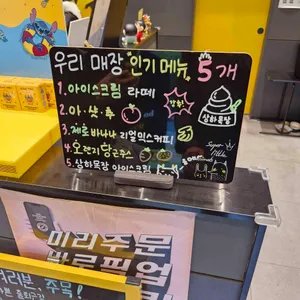 우리 매장 "인기메뉴" 5개
1. 아이스크림 라떼
2. 아·샷·추
강추!
상하목장
3. 제주 바나나 리얼믹스커피
4. 오렌지당근주스
5. 상하목장 아이스크림
미리주문
바로픽업